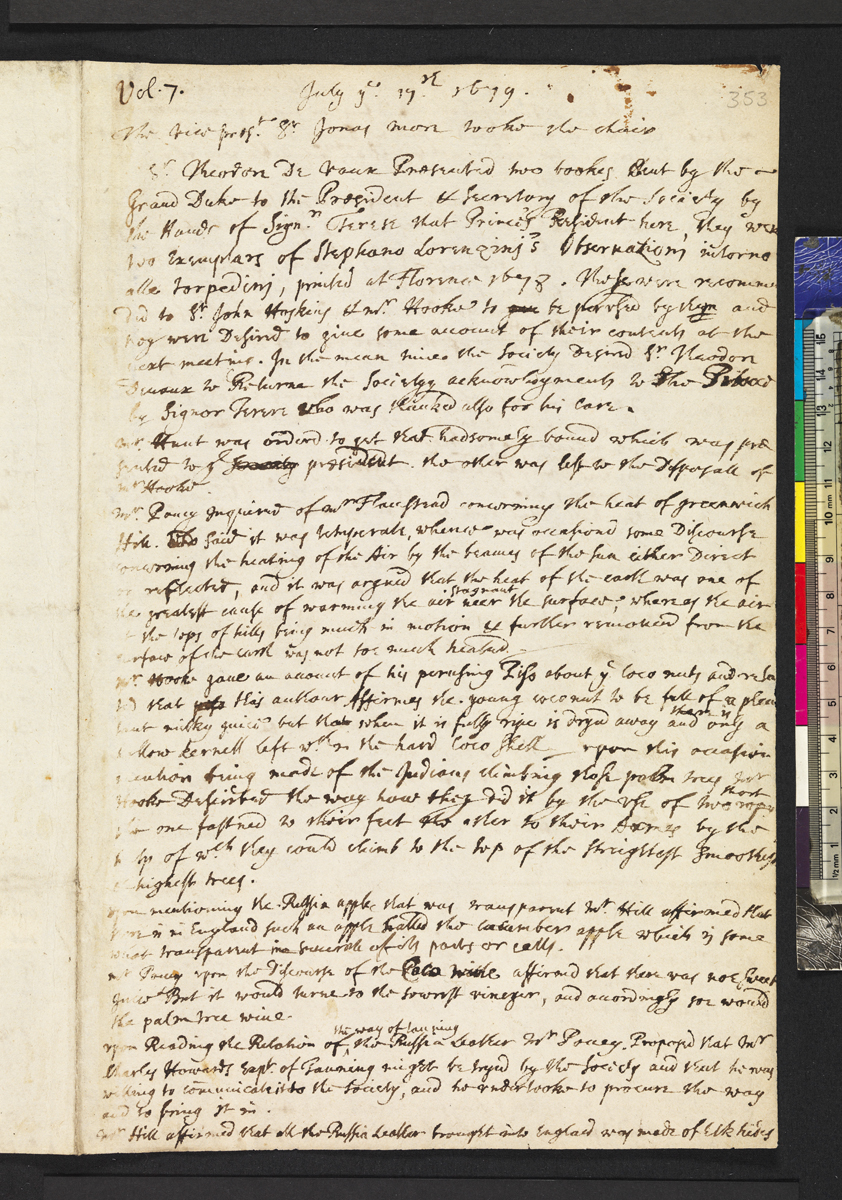 Vol. 7. July ye. 17th 1679. 353
The vice prest. Sr Jonas more tooke the chair
Sr. Theodore De vaux Presented two bookes Sent by the
Grand Duke to the President & Secretary of the Society by
the Hands of Signr. Terese that Princes Resident here, They were
two Exemplars of Stephano Lorenzini's Observationj intorno
alle Torpedinj, printed at Florence 1678. These were recomme
ded to Sr. John Hoskins & mr. Hooke to be perused by them and
they were Desired to give some account of their contents at the
next meeting. In the mean time the Society Desired Sr. Theodore
Devaux to Returne the Societys acknowledgments to the
by Signor Terese who was thanked also for his Care.
mr. Hunt was orderd to get that handsomely bound which was pre
sented to ye president. the other was left to the Disposall of
mr Hooke.
mr. Povey inquired of mr Flamstead concerning the heat of greenwich
Hill. Who said it was temperate, whence was occasiond some Discourse
concerning the heating of the Air by the beames of the sun either Direct
or reflected, and it was argued that the heat of the earth was one of
the greatest cause of warming the air stagnant neer the surface, whereas the air
at the tops of hills being much in motion & further removed from the
surface of the earth was not soe much heated.
mr. Hooke gave an account of his perusing Piso about ye Coco nuts and rela
ted that this authour Affirmes the young coconut to be full of a pleas
ant milky juice but that when it is fully ripe is dryed away and there is only a
hollow kernell left wth in the hard Coco shell upon this occasion
mention being made of the Indians climbing those palm trees mr
Hooke Described the way how they did it by the use of two short ropes
the one fastned to their feet the other to their Armes by the
help of wch they could climb to the top of the streightest Smoothest
& highest trees.
upon mentioning the Russia apple that was transparent mr. Hill affirmed that
there is in England such an apple called the cucumber apple which is some
what transparent in severall of its parts or cells.
mr Povey upon the Discourse of the Coco wine affirmed that there was noe sweet
Juice But it would turne to the sowrest vineger, and accordingly soe would
the palm tree wine.
upon Reading the Relation of the way of tanning the Russia Leather mr Povey Proposed that mr
Charles Howards Expt. of Tanning might be tryed by the Society and that he was
willing to communicate it to the Society, and he undertooke to procure the way
and to bring it in.
mr. Hill affirmed that all the Russia Leather brought into England was made of Elk hides